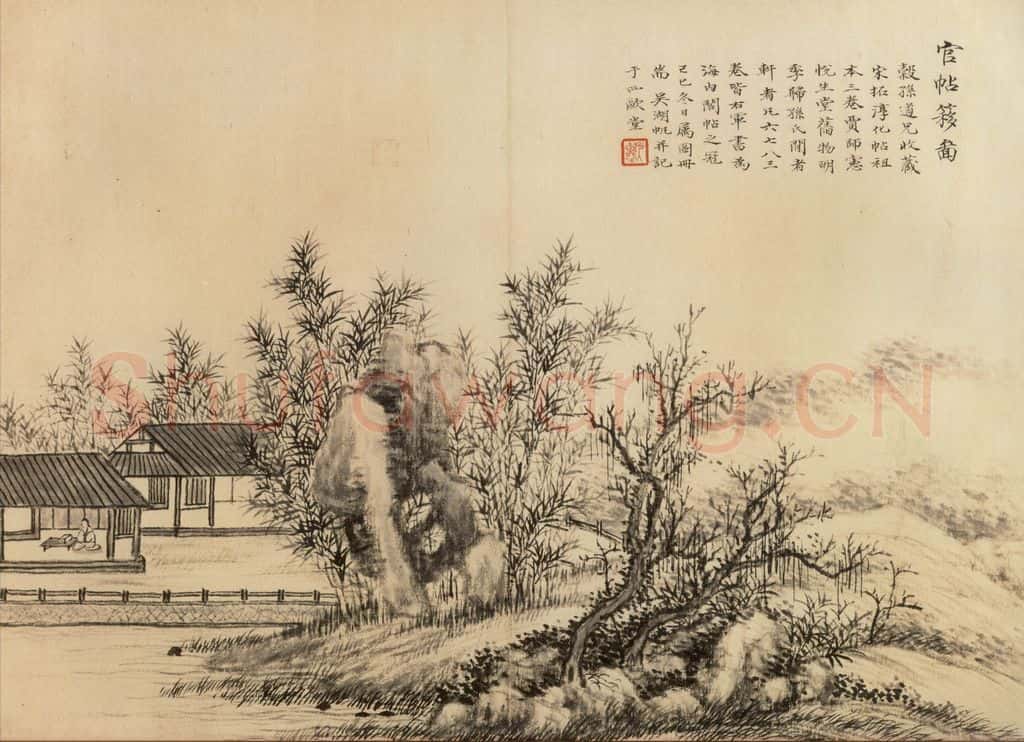 官帖簃圖
穀孫道兄收藏
宋拓淳化帖祖
本三卷賈師憲
悅生堂舊物明
季歸孫氏閒者
軒者凡六七八三
卷皆右軍書為
海內閣帖之冠
己巳冬日屬圖冊
耑吳湖帆并記
于四歐堂
Shufawang.CN